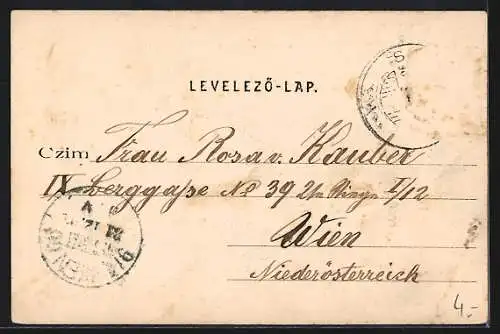 LEVELEZŐ-LAP.
Czim Frau Rosa v. Kauber
IX Berggaße No 39 2te Stiege I/12
Wien
Niederösterreich
4.-